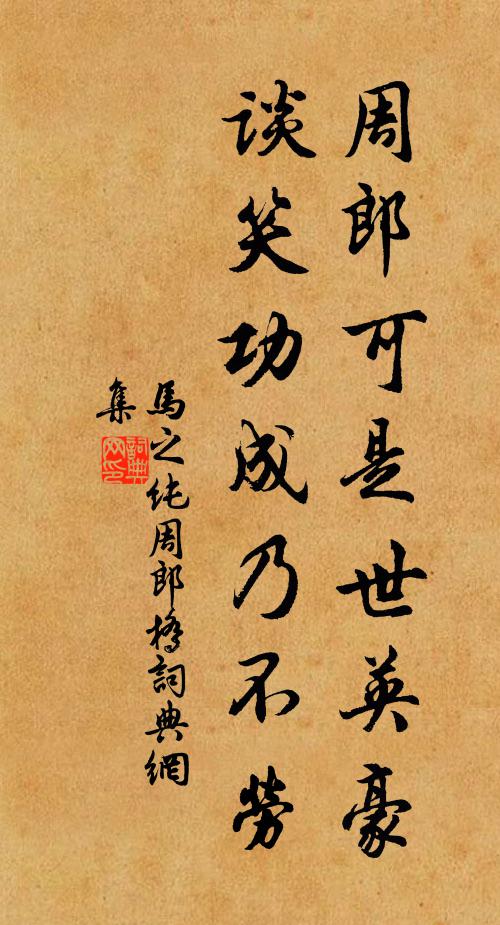 周郎可是世英豪
谈笑功成乃不勞
馬之純周郎橋詞典網
集
詞典網印